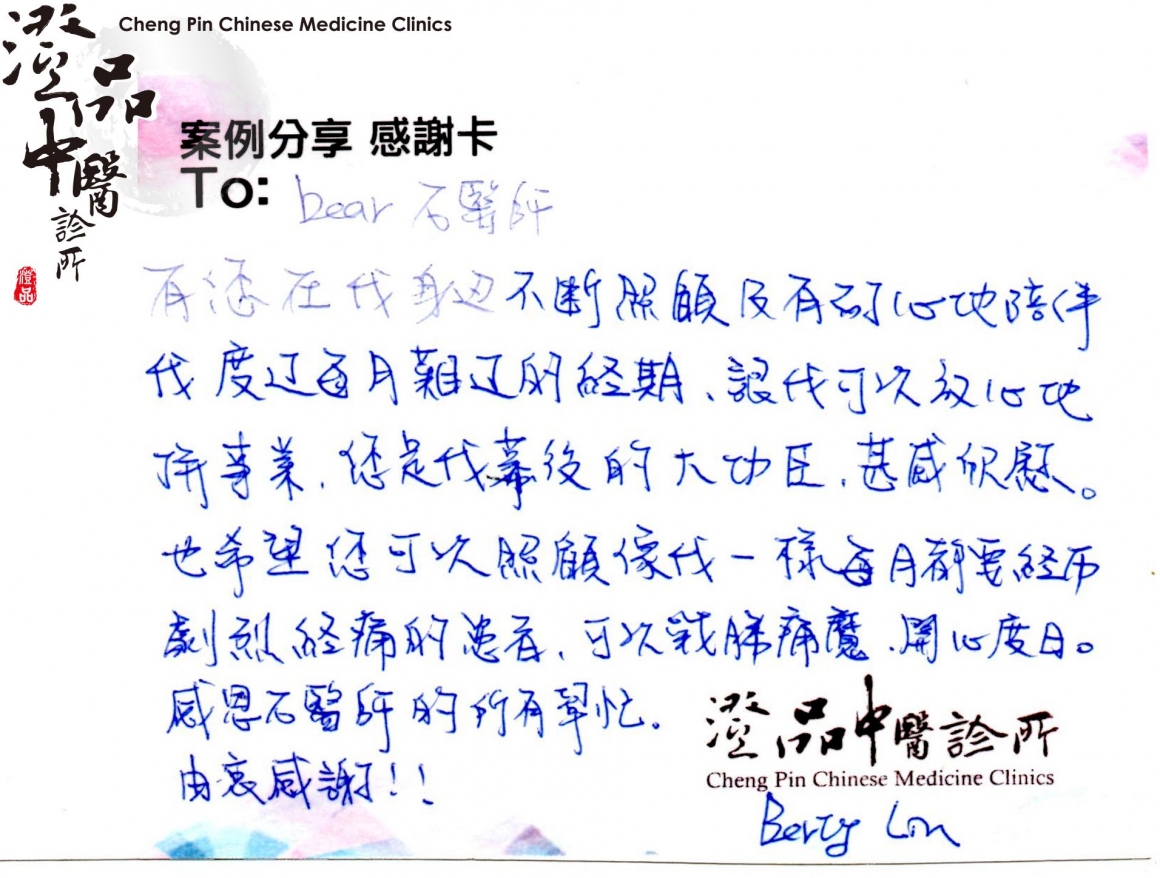 Cheng Pin Chinese Medicine Clinics
澄品中醫診所
澄品
案例分享 感謝卡
To: Dear 石醫師
有您在我身边不斷照顧及有耐心地陪伴
我度过每月難过的經期、讓我可以放心地
拼事業，您是我幕後的大功臣，甚感欣慰。
也希望您可以照顧像我一樣每月都要經历
劇烈經痛的患者，可以戰勝痛魔、開心度日。
感恩石醫師的所有幫忙。
由衷感謝!!
澄品中醫診所
Cheng Pin Chinese Medicine Clinics
Berty Lin